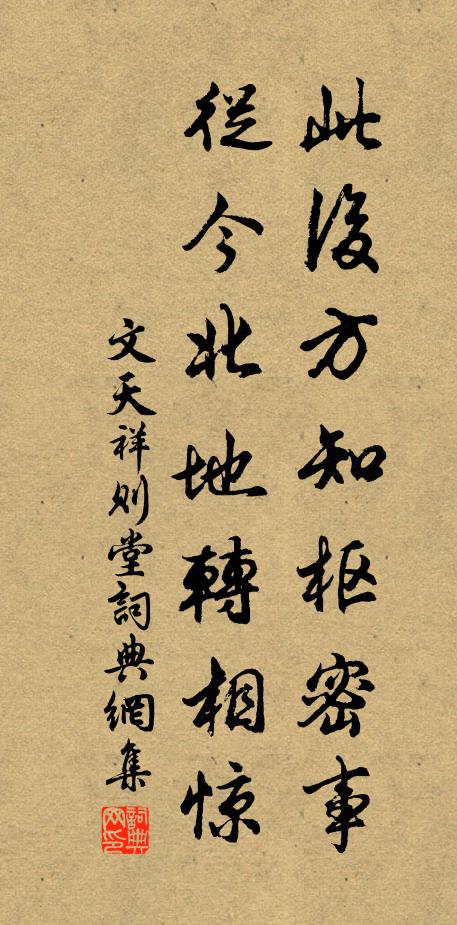 此後方知枢密事
從今北地轉相惊
文天祥则堂詞典網集
詞典
网印